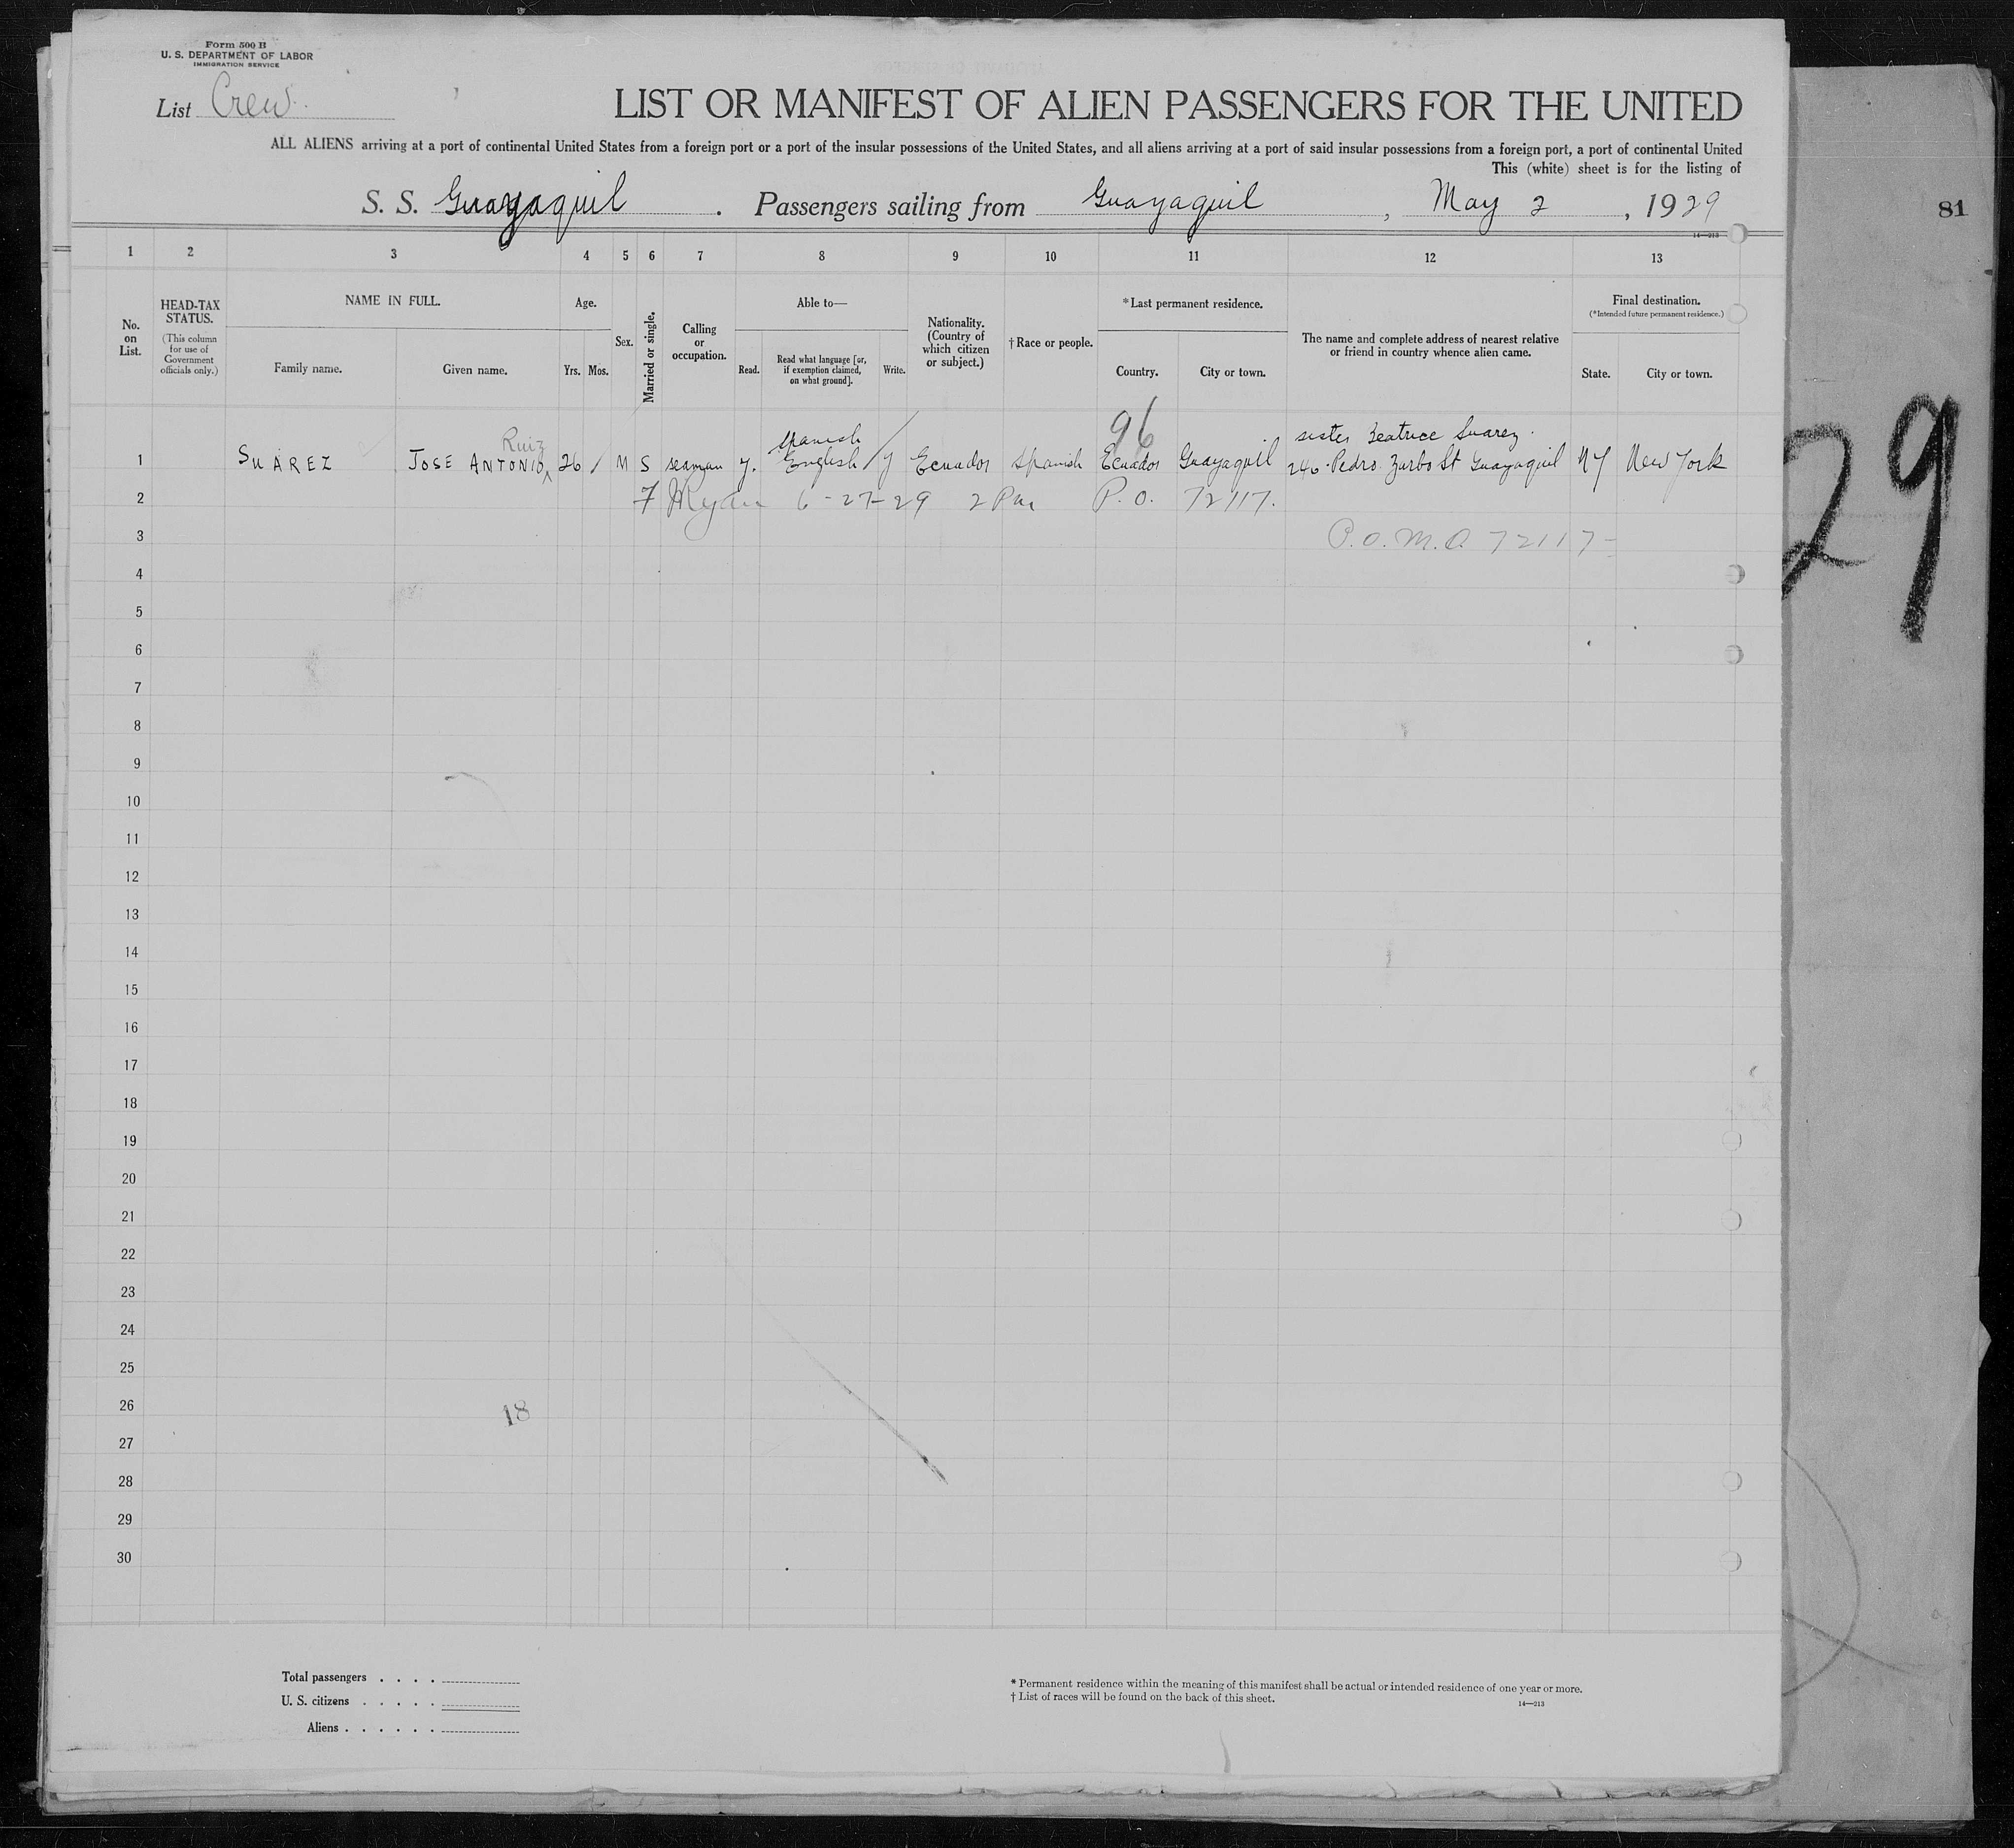 Form 500 B
U. S. DEPARTMENT OF LABOR
IMMIGRATION SERVICE
List Crew.
LIST OR MANIFEST OF ALIEN PASSENGERS FOR THE UNITED
ALL ALIENS arriving at a port of continental United States from a foreign port or a port of the insular possessions of the United States, and all aliens arriving at a port of said insular possessions from a foreign port, a port of continental United
This (white) sheet is for the listing of
S. S. Guayaquil . Passengers sailing from Guayaquil , May 2 , 1929
81
14—213
1 2 3 4 5 6 7 8 9 10 11 12 13
No. on List.
HEAD-TAX STATUS.
(This column for use of Government officials only.)
NAME IN FULL.
Family name.
Given name.
Age.
Yrs. Mos.
Sex.
Married or single.
Calling or occupation.
Able to—
Read.
Read what language [or, if exemption claimed, on what ground].
Write.
Nationality. (Country of which citizen or subject.)
† Race or people.
*Last permanent residence.
Country.
City or town.
The name and complete address of nearest relative or friend in country whence alien came.
Final destination.
(*Intended future permanent residence.)
State.
City or town.
96
Ruiz Spanish sister Beatrice Suarez.
1 SUAREZ JOSE ANTONIO 26 / M S seaman y. English y Ecuador Spanish Ecuador Guayaquil 246 Pedro Zurbo St Guayaquil NY New York
2 Ryan 6-27-29 2 Pm P.O. 72117.
3 P.O.M.O. 72117-
29
4
5
6
7
8
9
10
11
12
13
14
15
16
17
18
19
20
21
22
23
24
25
26
18
27
28
29
30
Total passengers . . . .
U. S. citizens . . . . .
Aliens . . . . . .
* Permanent residence within the meaning of this manifest shall be actual or intended residence of one year or more.
† List of races will be found on the back of this sheet.
14—213